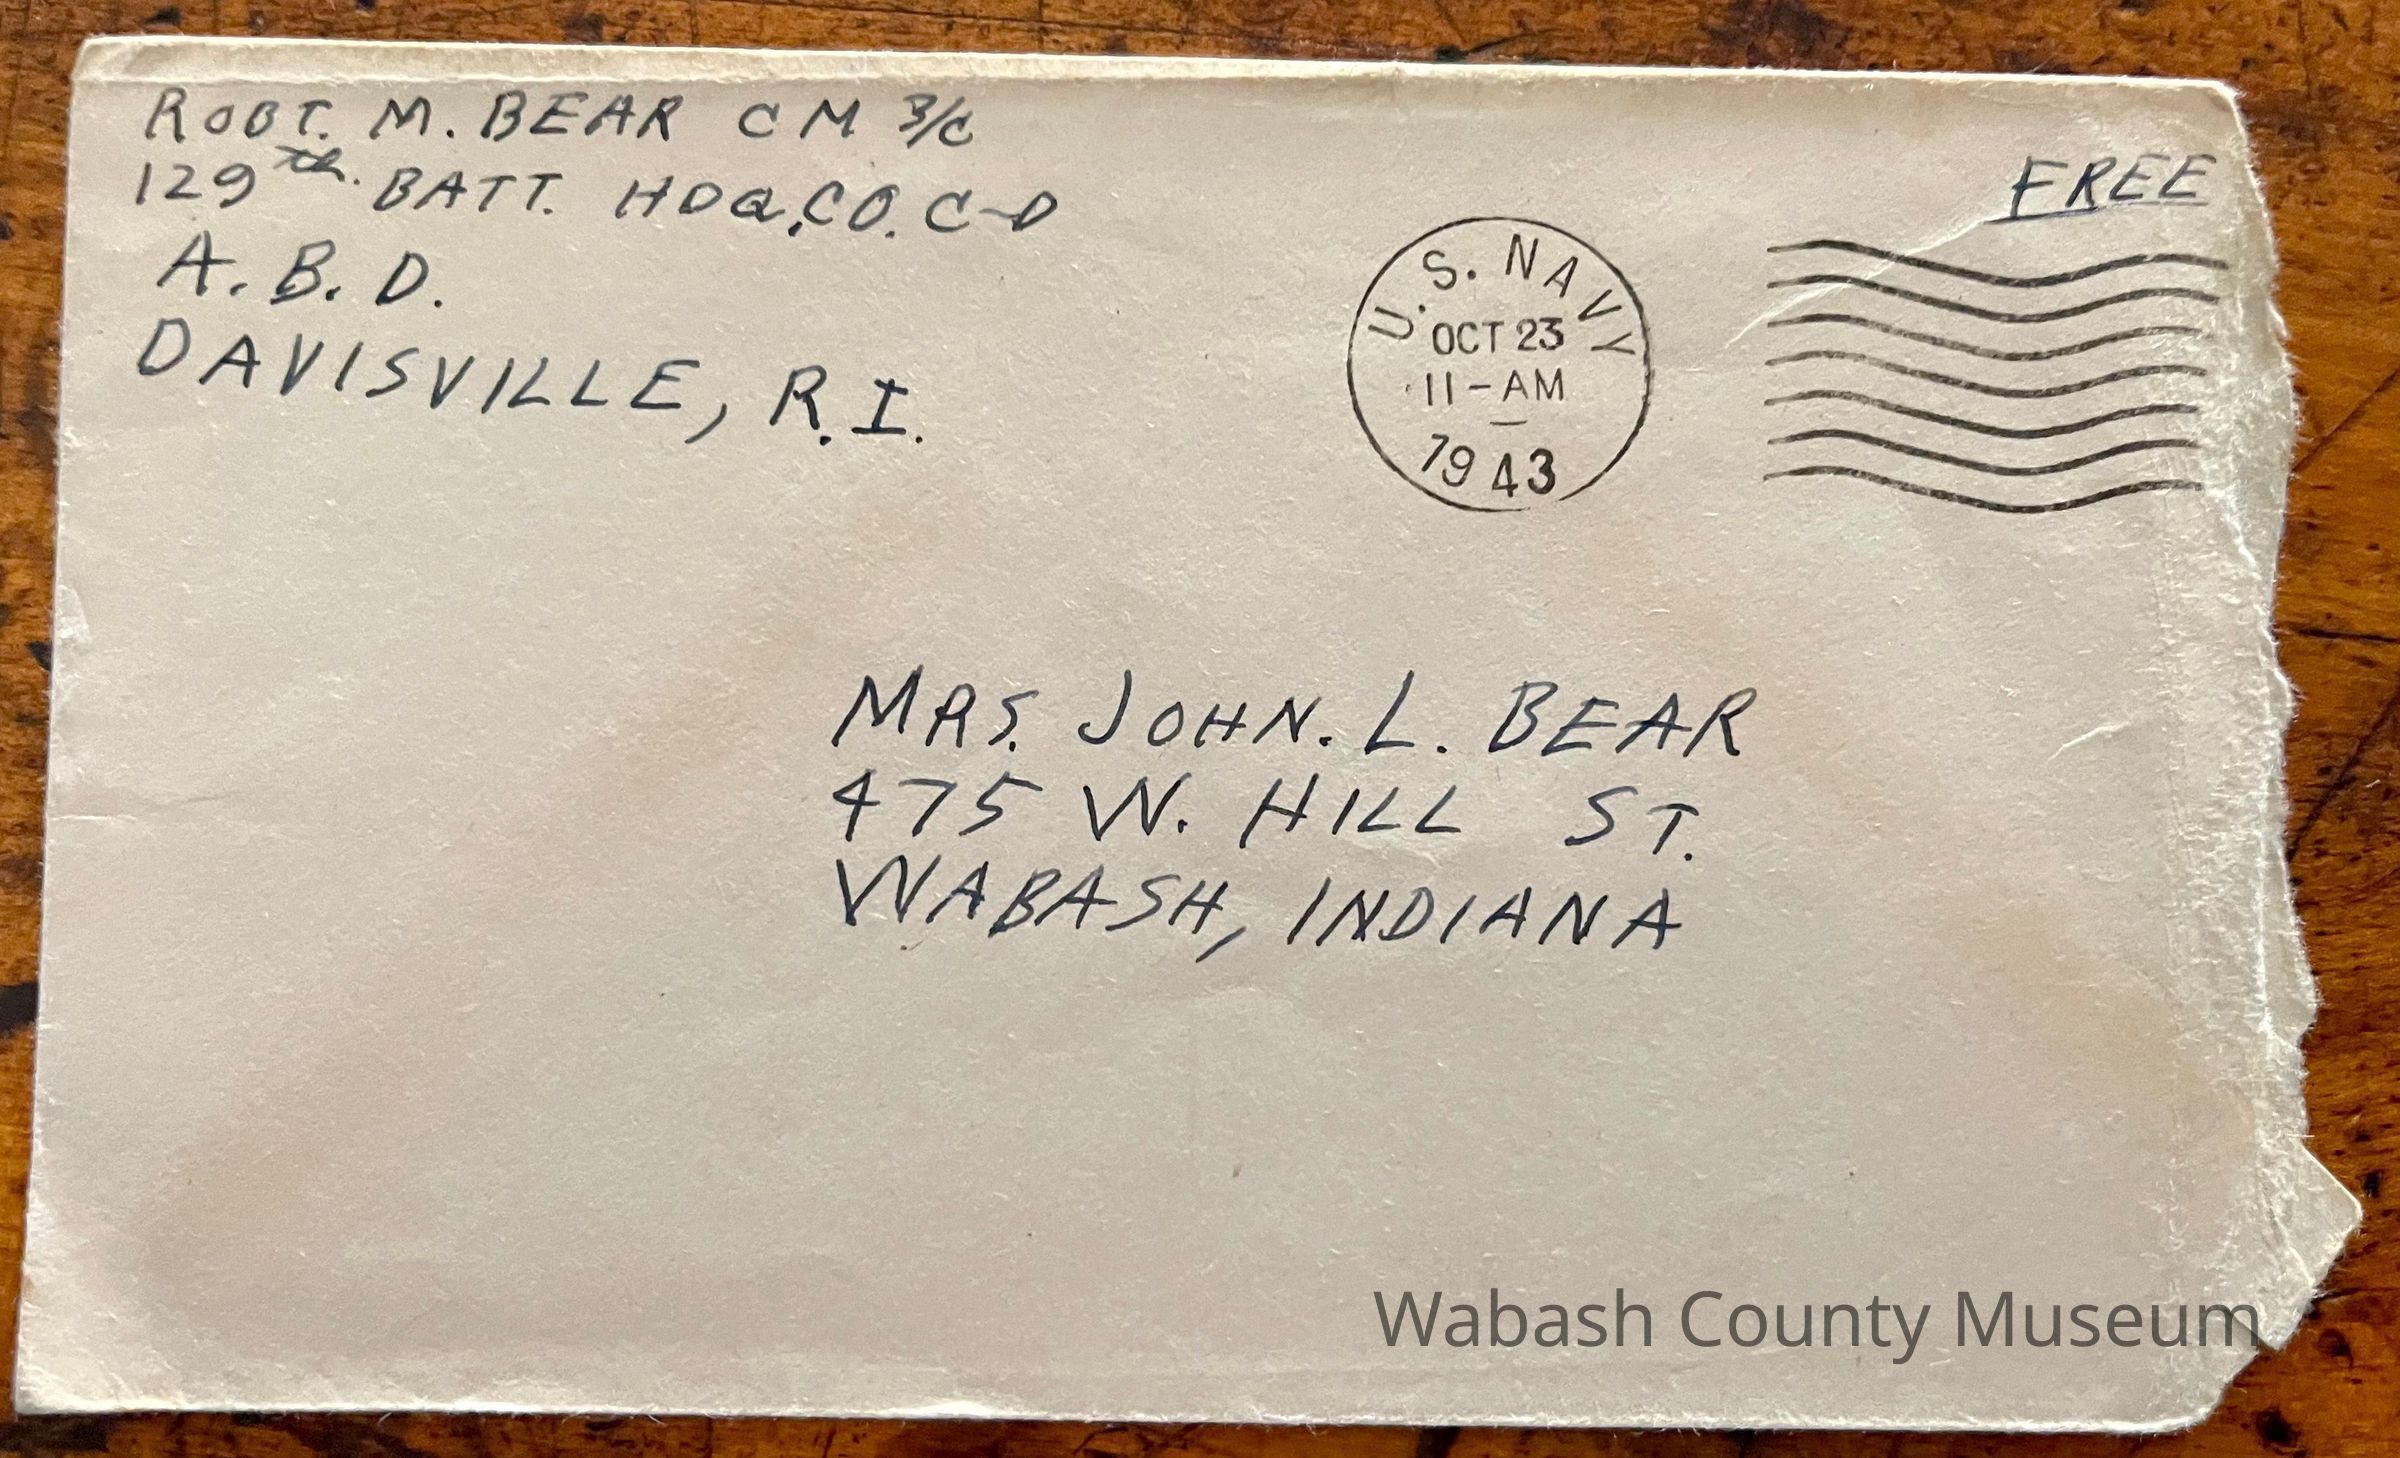 ROBT. M. BEAR CM 3/C
129th. BATT. HDQ. CO. C-D
A. B. D.
DAVISVILLE, R.I.
FREE
U.S. NAVY
OCT 23
11-AM
1943
MRS. JOHN. L. BEAR
475 W. HILL ST.
WABASH, INDIANA
Wabash County Museum